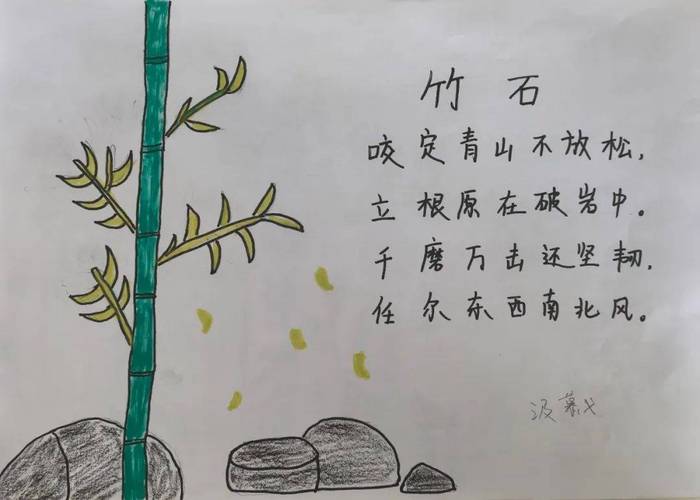 竹石
咬定青山不放松,
立根原在破岩中。
千磨万击还坚韧,
任尔东西南北风。